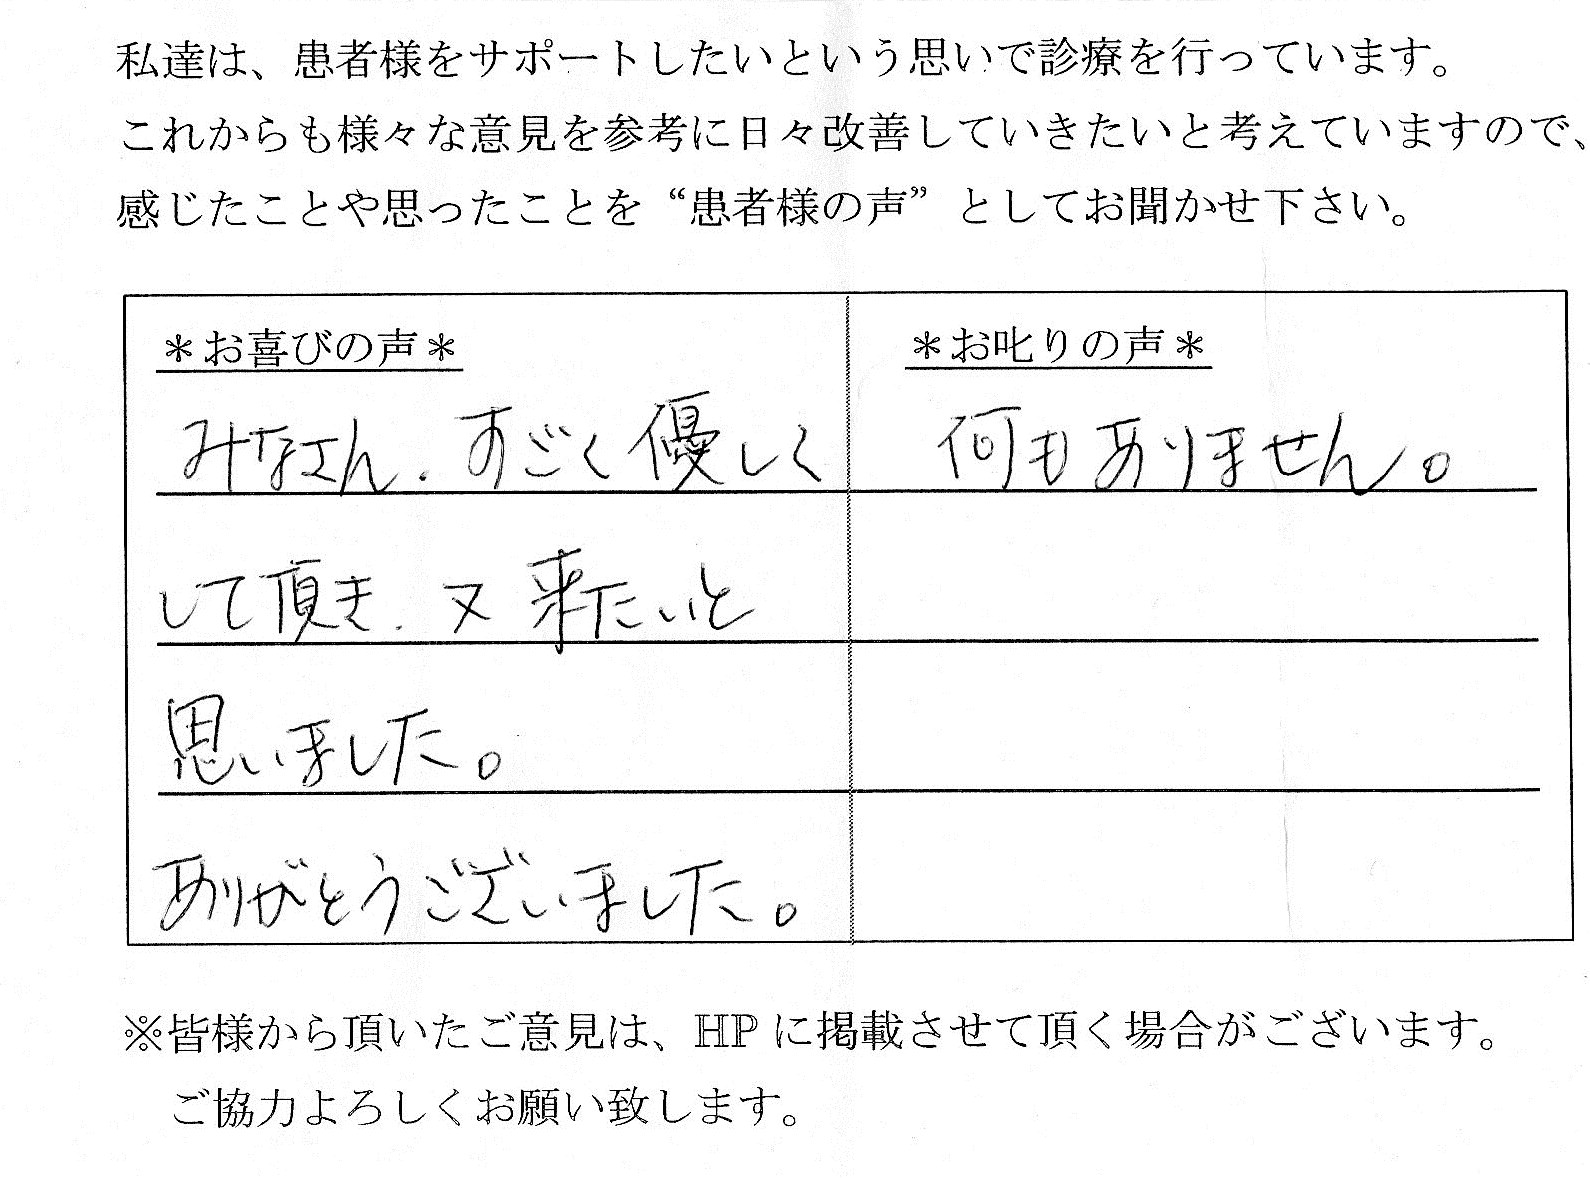 私達は、患者様をサポートしたいという思いで診療を行っています。
これからも様々な意見を参考に日々改善していきたいと考えていますので、
感じたことや思ったことを“患者様の声”としてお聞かせ下さい。
＊お喜びの声＊
みなさん、すごく優しく
して頂き、又来たいと
思いました。
ありがとうございました。
＊お叱りの声＊
何もありません。
※皆様から頂いたご意見は、HPに掲載させて頂く場合がございます。
ご協力よろしくお願い致します。